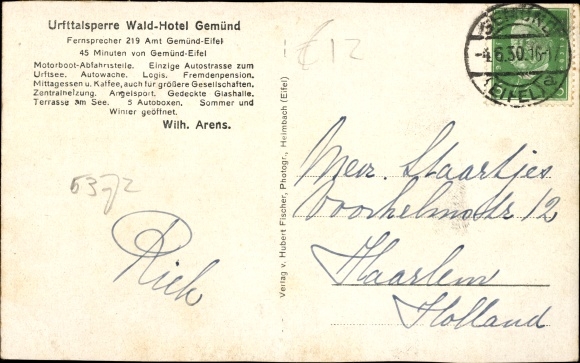 Urfttalsperre Wald-Hotel Gemünd
Fernsprecher 219 Amt Gemünd-Eifel
45 Minuten von Gemünd-Eifel
Motorboot-Abfahrtstelle. Einzige Autostrasse zum
Urftsee. Autowache. Logis. Fremdenpension.
Mittagessen u. Kaffee, auch für größere Gesellschaften.
Zentralheizung. Angelsport. Gedeckte Glashalle.
Terrasse am See. 5 Autoboxen. Sommer und
Winter geöffnet.
Wilh. Arens.
5372
Riek
Verlag v. Hubert Fischer, Photogr., Heimbach (Eifel)
€12
-4.6.30.16-
(EIFEL) a
Mevr. Staartjes
Voorhelmstr 12
Haarlem
Holland